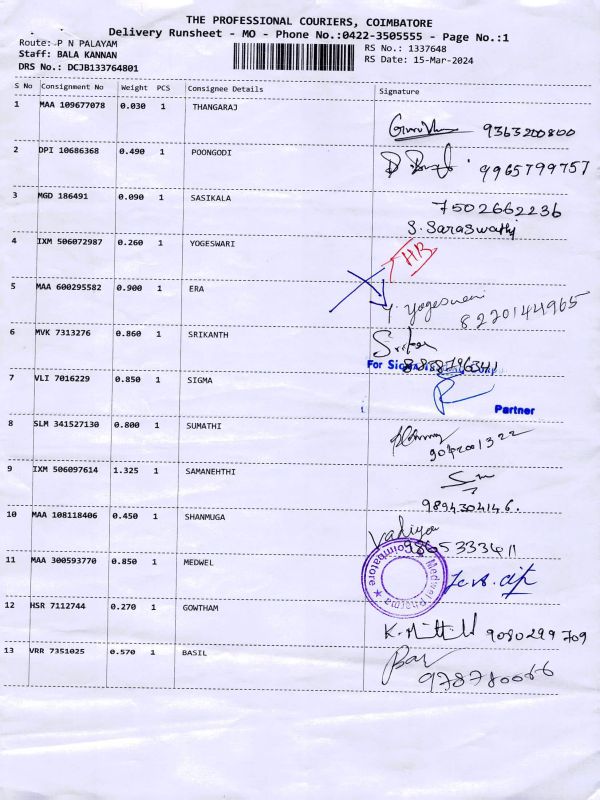 THE PROFESSIONAL COURIERS, COIMBATORE
Delivery Runsheet - MO - Phone No.:0422-3505555 - Page No.:1
Route: P N PALAYAM
Staff: BALA KANNAN
DRS No.: DCJB133764801
RS No.: 1337648
RS Date: 15-Mar-2024
S No Consignment No Weight PCS Consignee Details Signature
1 MAA 109677078 0.030 1 THANGARAJ
9363200800
2 DPI 10686368 0.490 1 POONGODI
9965799757
3 MGD 186491 0.090 1 SASIKALA
7502662236
S. Saraswathi
4 IXM 506072987 0.260 1 YOGESWARI
HB
5 MAA 600295582 0.900 1 ERA
Y. Yogeswari
8220144965
6 MVK 7313276 0.860 1 SRIKANTH
For
7 VLI 7016229 0.850 1 SIGMA
Partner
8 SLM 341527130 0.800 1 SUMATHI
9042001322
9 IXM 506097614 1.325 1 SAMANEHTHI
9894304146.
10 MAA 108118406 0.450 1 SHANMUGA
11 MAA 300593770 0.850 1 MEDWEL
Medwel Pharma
Coimbatore
12 HSR 7112744 0.270 1 GOWTHAM
9080299709
13 VRR 7351025 0.570 1 BASIL